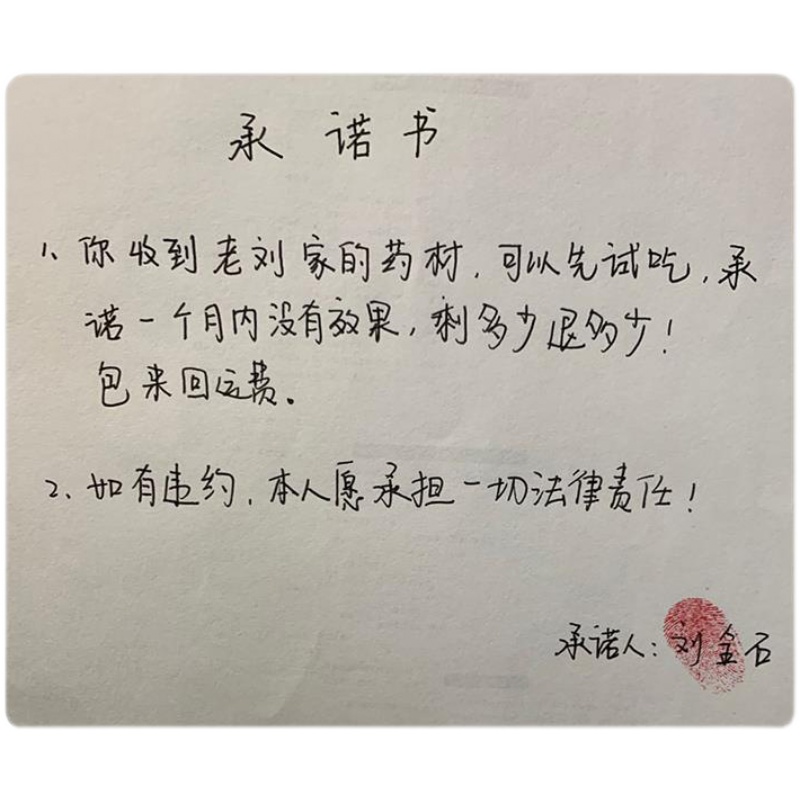 承诺书
1、你收到老刘家的药材，可以先试吃，承
诺一个月内没有效果，剩多少退多少！
包来回运费。
2、如有违约，本人愿承担一切法律责任！
承诺人：刘金石